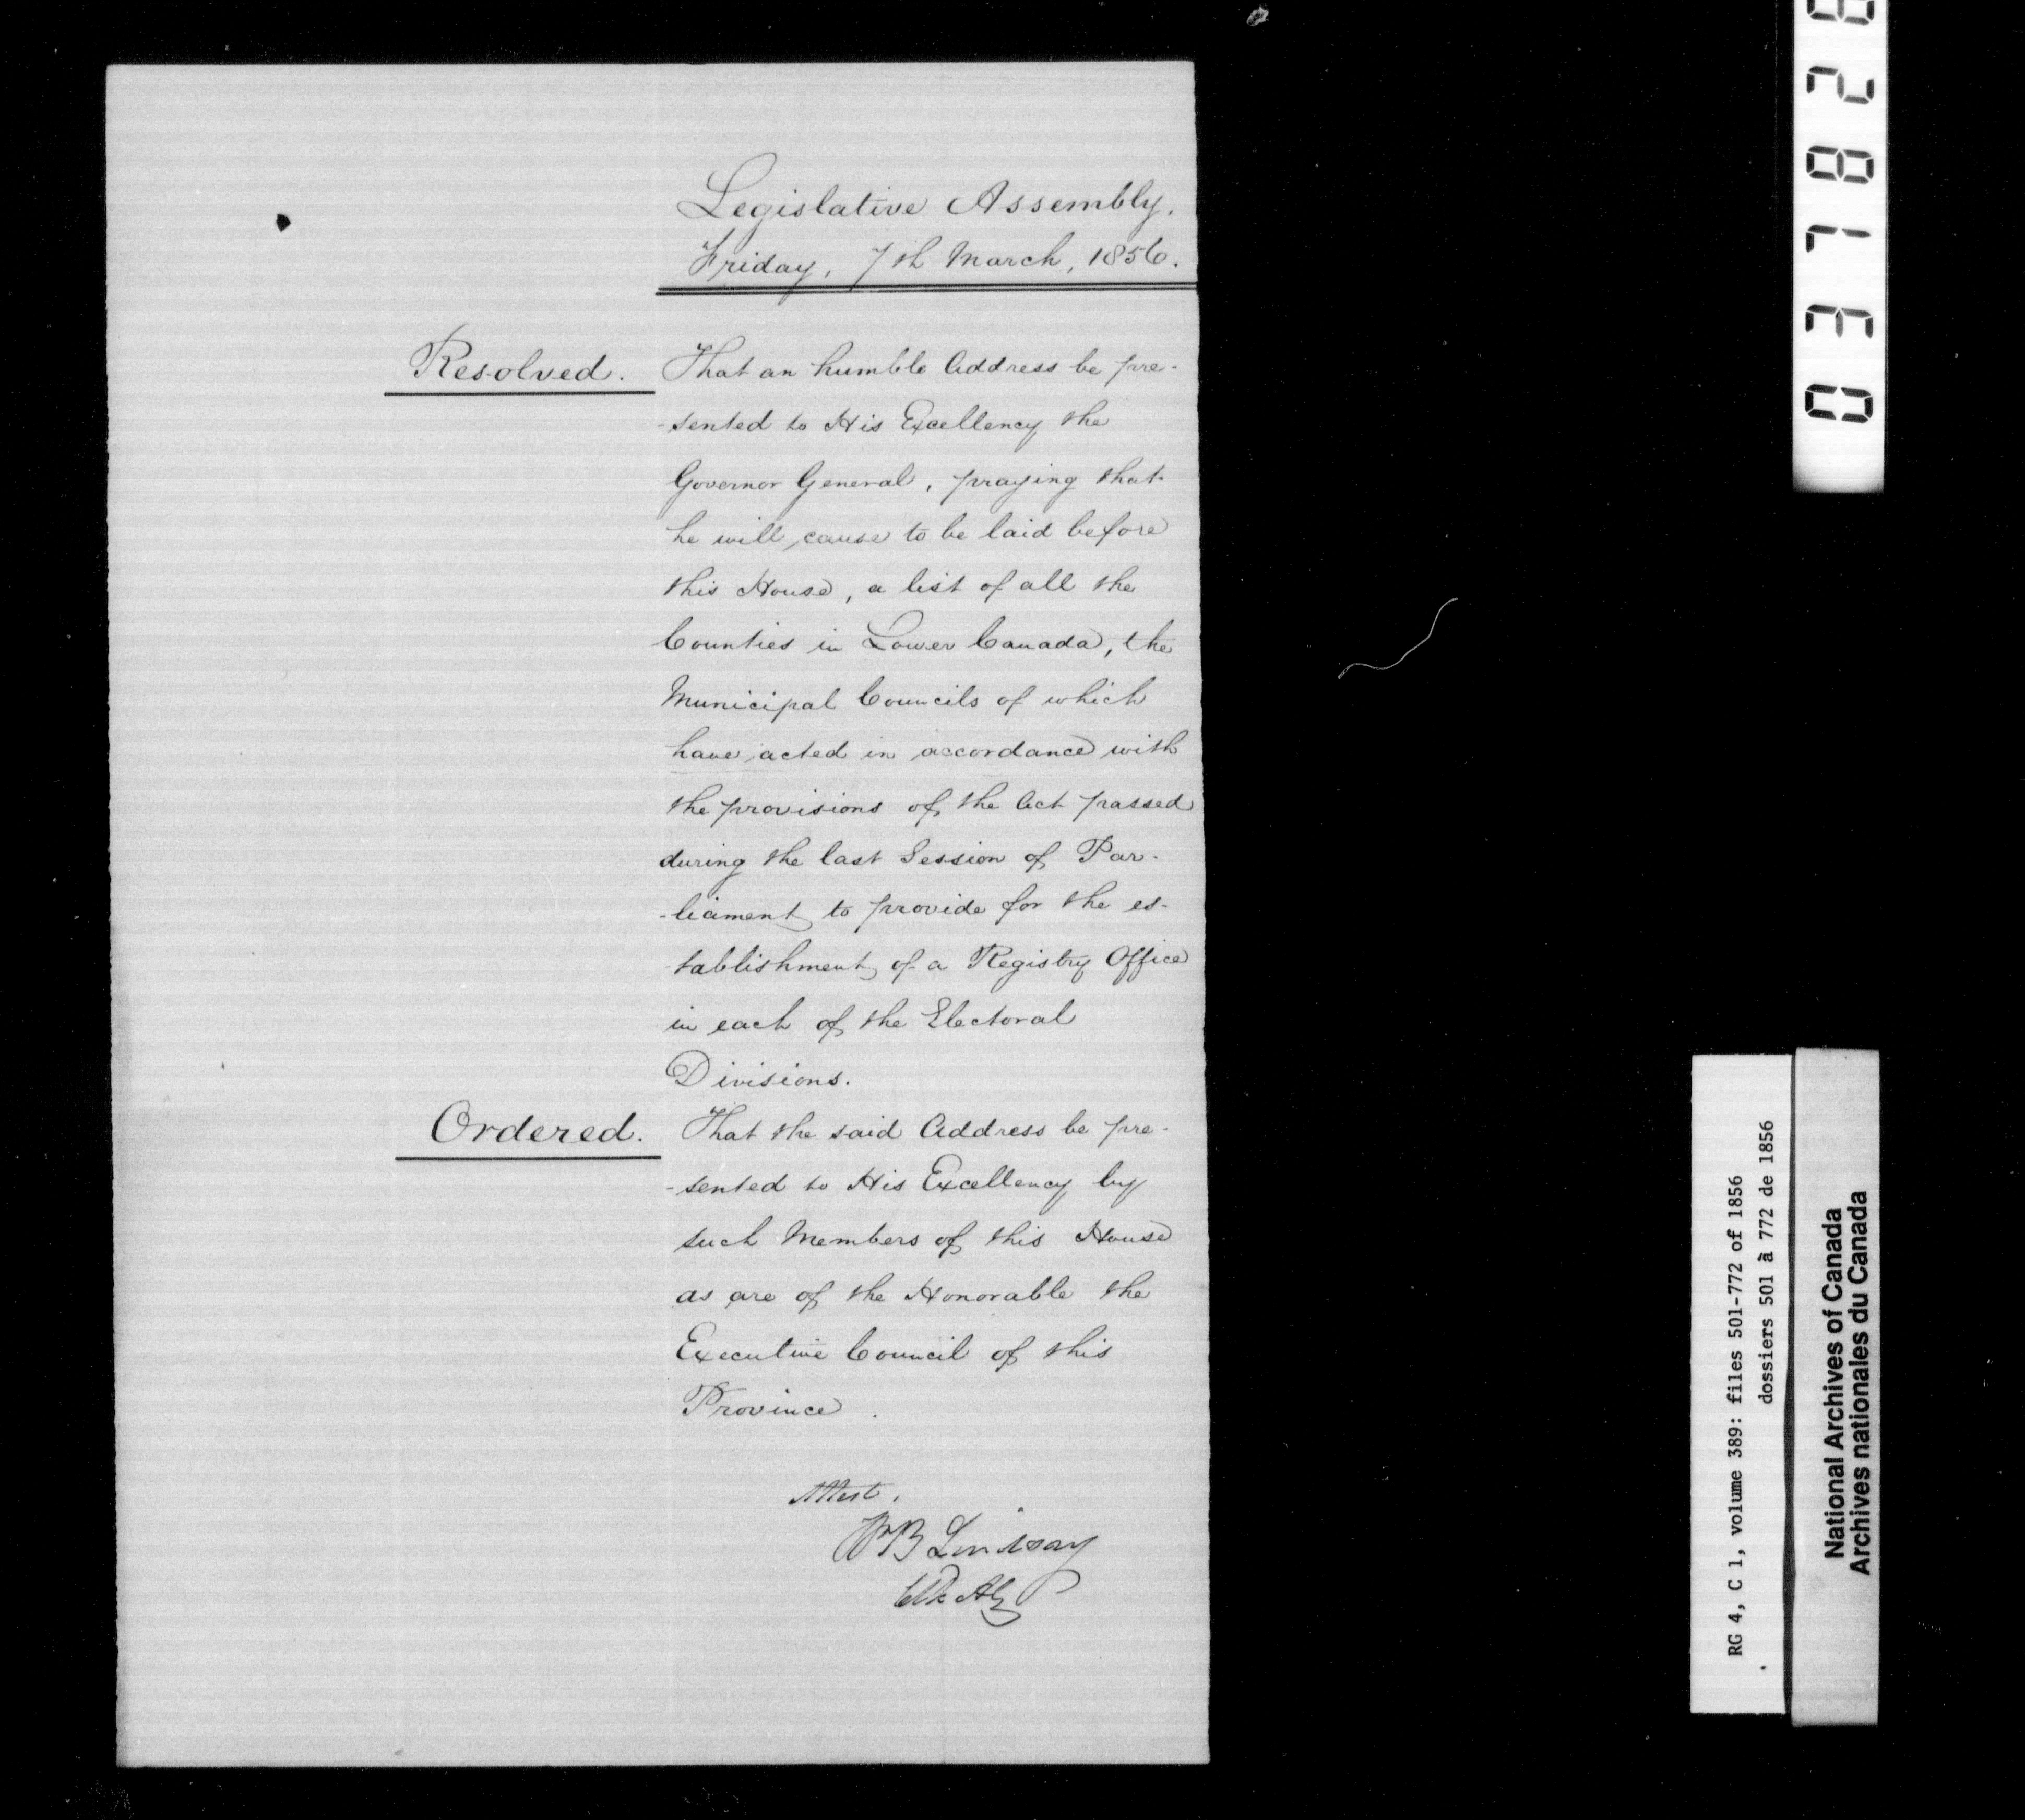 Legislative Assembly,
Friday, 7th March, 1856.
Resolved. That an humble Address be pre-
-sented to His Excellency the
Governor General, praying that
he will cause to be laid before
this House, a list of all the
Counties in Lower Canada, the
Municipal Councils of which
have acted in accordance with
the provisions of the Act passed
during the last Session of Par-
-liament to provide for the es-
-tablishment of a Registry Office
in each of the Electoral
Divisions.
Ordered. That the said Address be pre-
-sented to His Excellency by
such Members of this House
as are of the Honorable the
Executive Council of this
Province.
Attest,
WB Lindsay
Clk Ay
RG 4, C 1, volume 389: files 501-772 of 1856
dossiers 501 à 772 de 1856
National Archives of Canada
Archives nationales du Canada